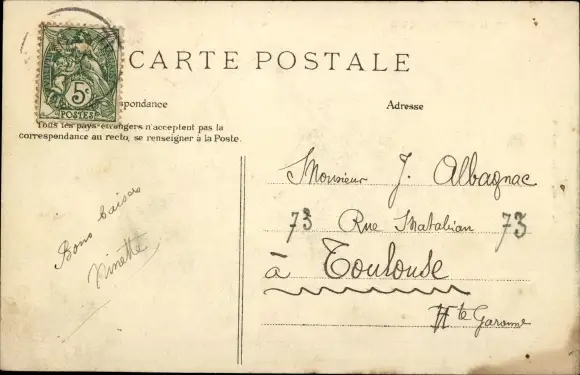 CARTE POSTALE
5c
POSTES
pondance
Tous les pays étrangers n'acceptent pas la
correspondance au recto, se renseigner à la Poste.
Bons baisers
Ninette
Adresse
Monsieur J. Albagnac
73 Rue Matabiau 73
à Toulouse
Hte Garonne